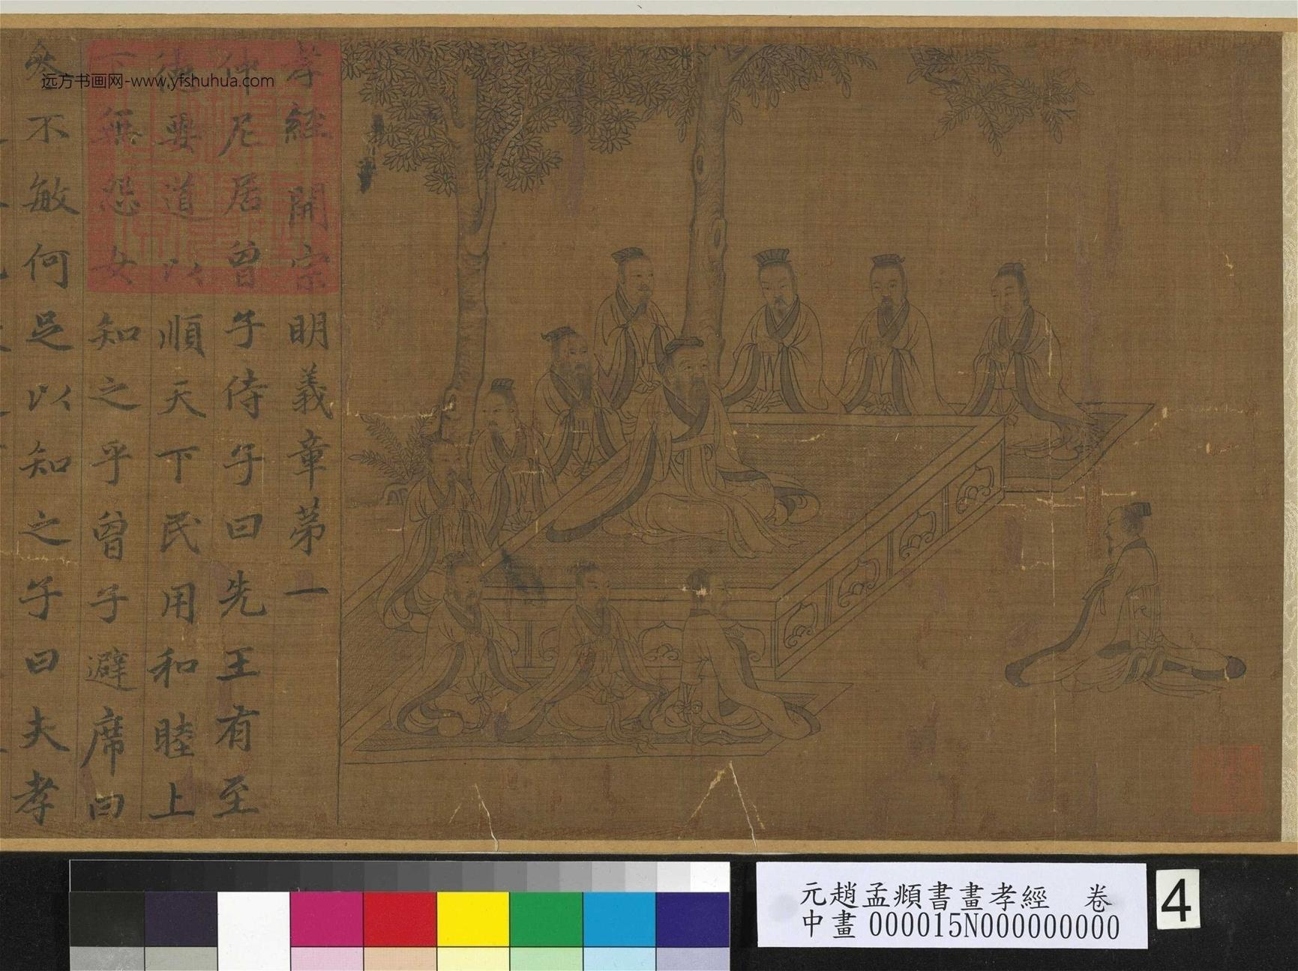 孝經 開宗明義章第一
仲尼居曾子侍子曰先王有至
德要道以順天下民用和睦上
下無怨女知之乎曾子避席曰
參不敏何足以知之子曰夫孝
远方书画网-www.yfshuhua.com
元趙孟頫書畫孝經 卷
中畫000015N000000000
4